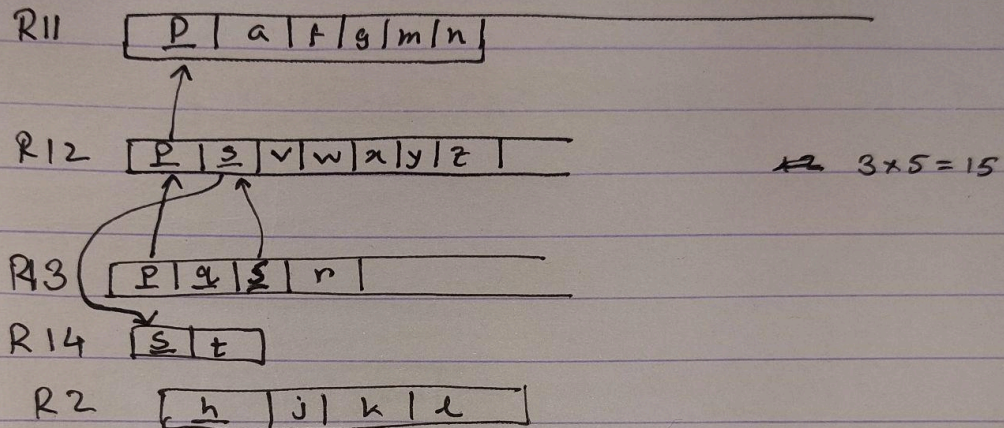 R11 P a f g m n
R12 P s v w x y z
3x5=15
R13 P q s r
R14 s t
R2 h j k l